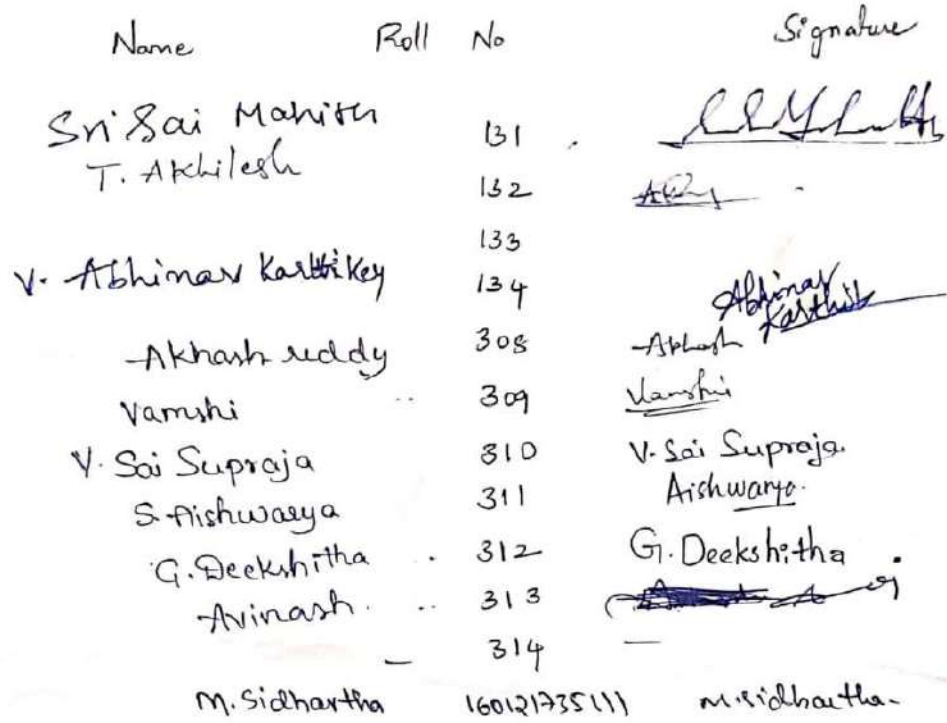 Name Roll No Signature
Sri Sai Mahith 131
T. Akhilesh 132
133
V. Abhinav Karthikey 134 Abhinav Karthik
Akhash reddy 308 Akhash
Vamshi 309 Vamshi
V. Sai Supraja 310 V. Sai Supraja
S. Aishwarya 311 Aishwarya.
G. Deekshitha 312 G. Deekshitha
Avinash. 313
— 314 —
M. Sidhartha 160121735111 M. Sidhartha